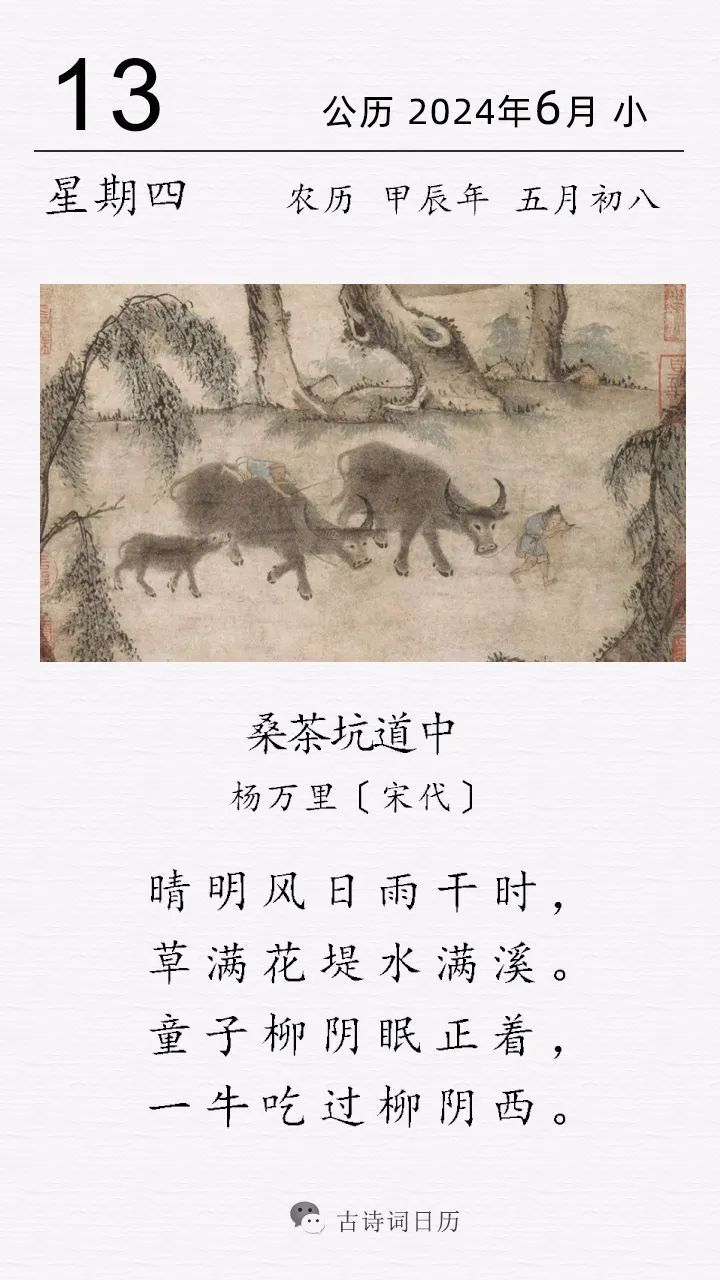 13
公历 2024年6月 小
星期四
农历 甲辰年 五月初八
桑茶坑道中
杨万里〔宋代〕
晴明风日雨干时，
草满花堤水满溪。
童子柳阴眠正着，
一牛吃过柳阴西。
古诗词日历